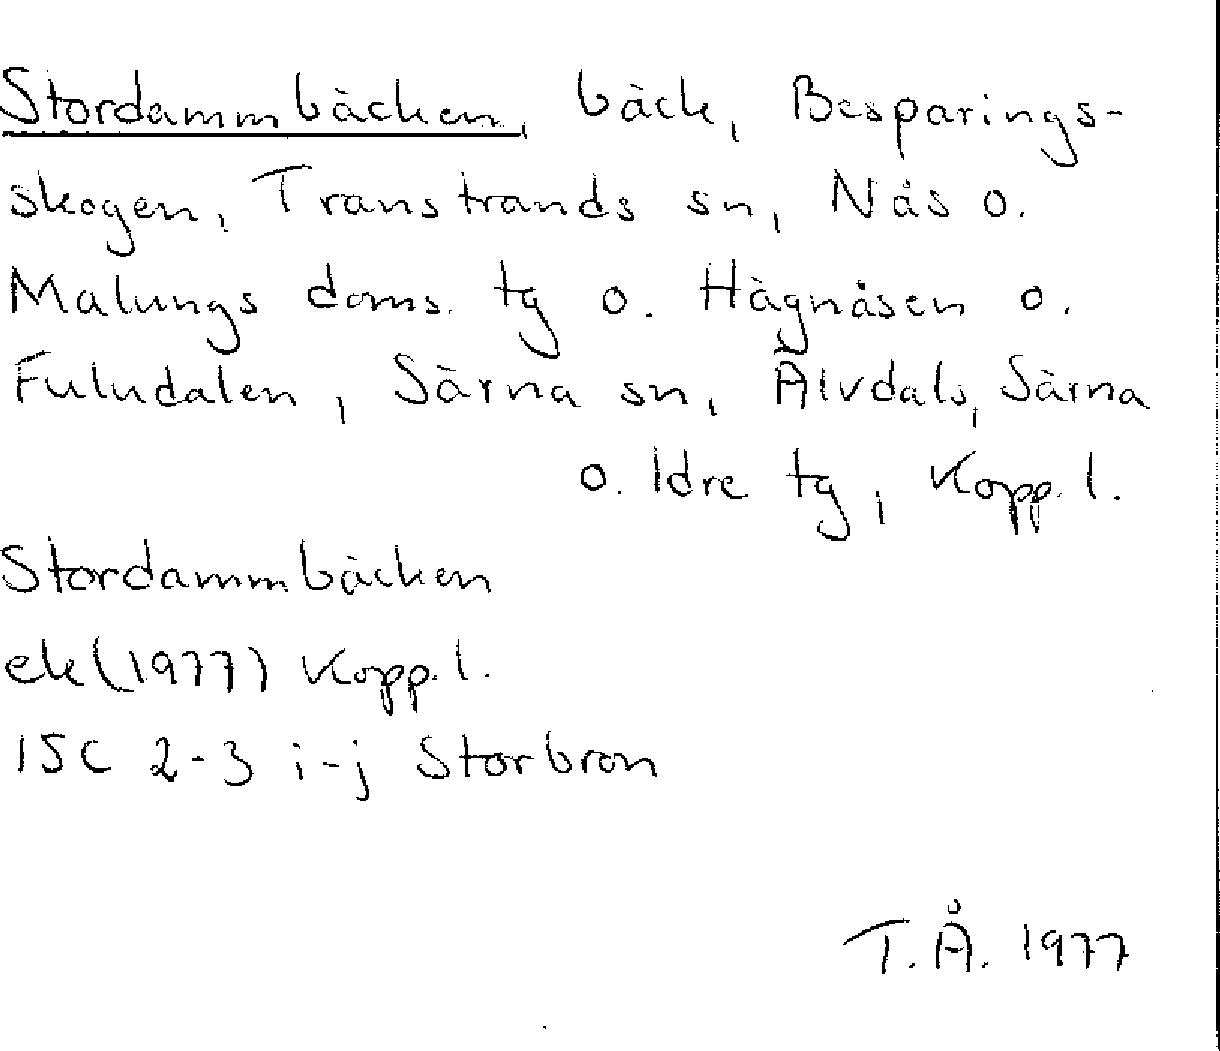 Stordammbäcken, bäck, Besparings-
skogen, Transtrands sn, Nås o.
Malungs doms. tg o. Hägnåsen o.
Fuludalen, Särna sn, Älvdals, Särna
o. Idre tg, Kopp. l.
Stordammbäcken
ek (1977) Kopp. l.
15C 2-3 i-j Storbron
T.Å. 1977